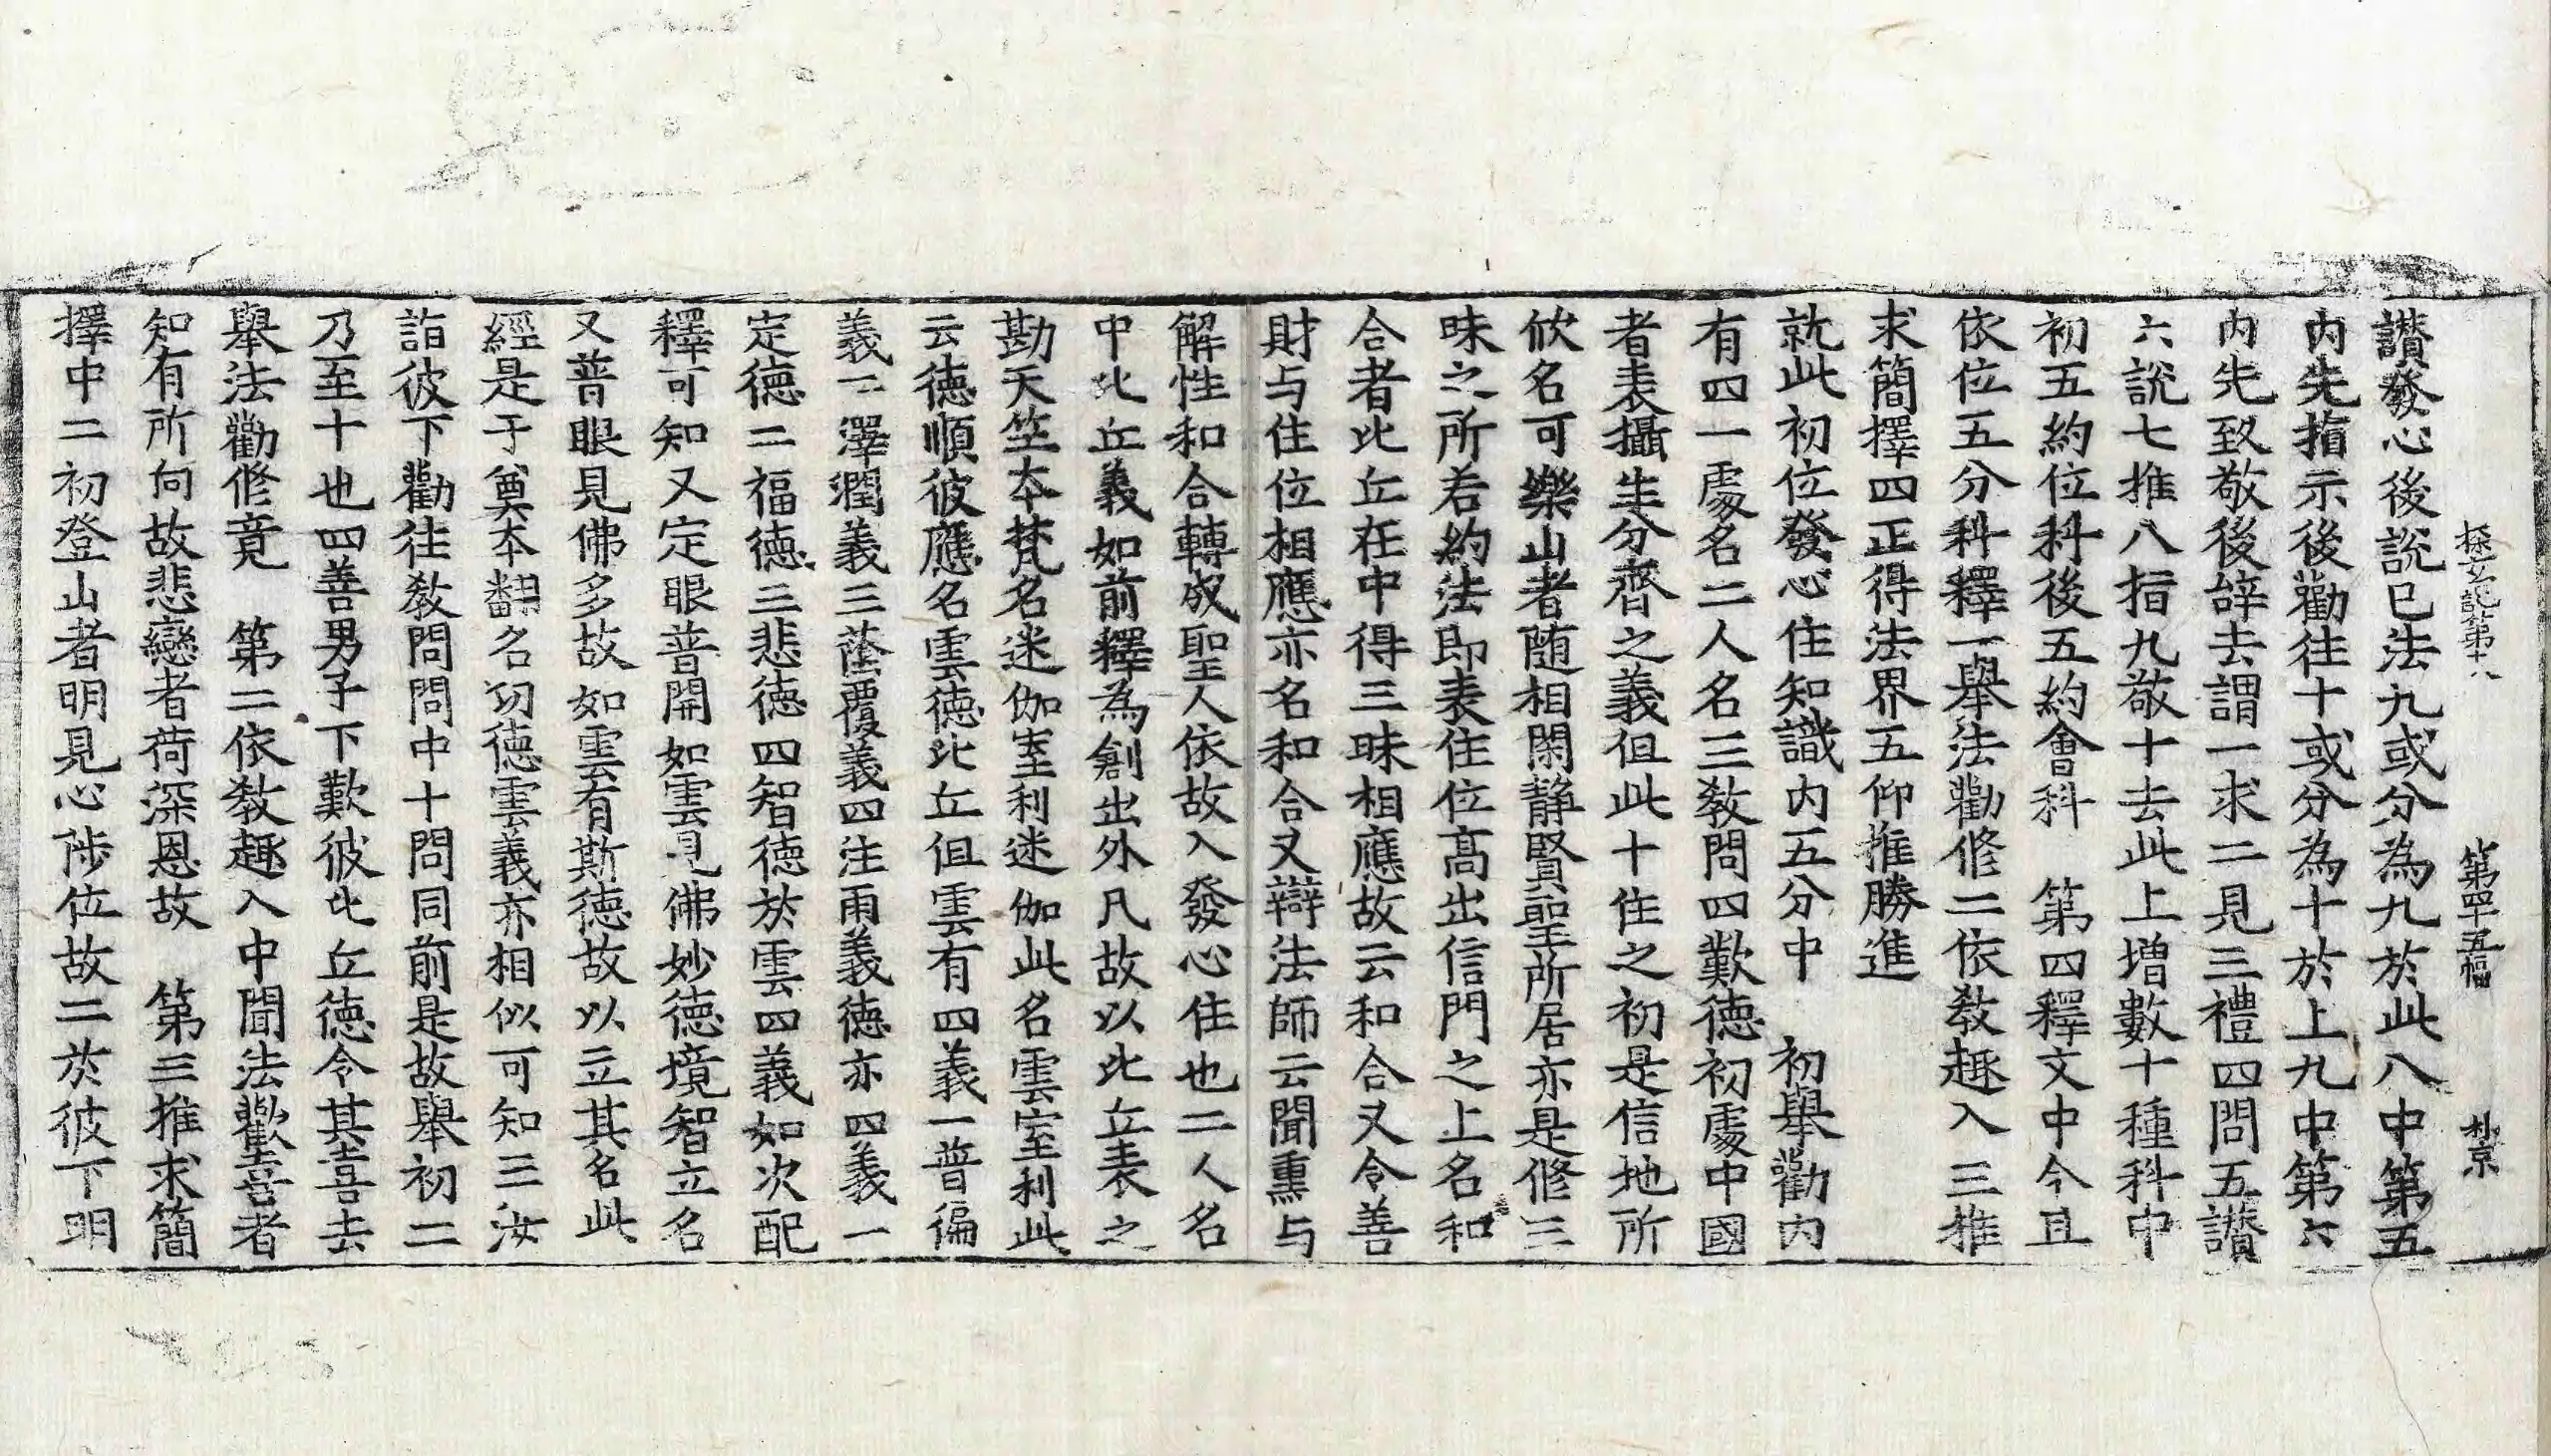 探玄記第十八　第四十五幅　朴京
讃發心後説已法九或分為九於此八中第五
内先指示後勸往十或分為十於上九中第六
内先致敬後辝去謂一求二見三禮四問五讃
六説七推八指九敬十去此上增數十種科中
初五約位科後五約會科　第四釋文中今且
依位五分科釋一舉法勸修二依教趣入三推
求簡擇四正得法界五仰推勝進
就此初位發心住知識内五分中　初舉勸内
有四一處名二人名三教問四歎德初處中國
者表攝生分齊之義但此十住之初是信地所
欣名可樂山者随相閑靜賢聖所居亦是修三
昧之所若約法即表住位髙出信門之上名和
合者比丘在中得三昧相應故云和合又令善
財与住位相應亦名和合又辯法師云聞熏与
解性和合轉成聖人依故入發心住也二人名
中比丘義如前釋為創出外凡故以比丘表之
勘天竺本梵名迷伽室利迷伽此名雲室利此
云德順彼應名雲德比丘但雲有四義一普徧
義二澤潤義三蔭覆義四注雨義德亦四義一
定德二福德三悲德四智德於雲四義如次配
釋可知又定眼普開如雲見佛妙德境智立名
又普眼見佛多故如雲有斯德故以立其名此
經是于奠本翻名功德雲義亦相似可知三汝
詣彼下勸往教問問中十問同前是故舉初二
乃至十也四善男子下歎彼比丘德令其喜去
舉法勸修竟　第二依教趣入中聞法歡喜者
知有所向故悲戀者荷深恩故　第三推求簡
擇中二初登山者明見心陟位故二於彼下明